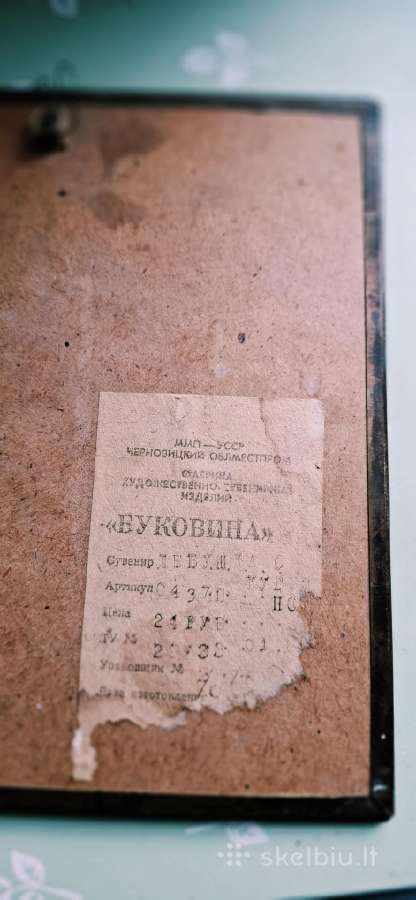 ММП—УССР
ЧЕРНОВИЦКИЙ ОБЛМЕСТПРОМ
ФАБРИКА
ХУДОЖЕСТВЕННО-СУВЕНИРНЫХ
ИЗДЕЛИЙ
«БУКОВИНА»
Сувенир
Артикул 0437
НО
Цена
24 РУБ
ТУ №
Упаковщик №
Дата изготовления
skelbiu.lt